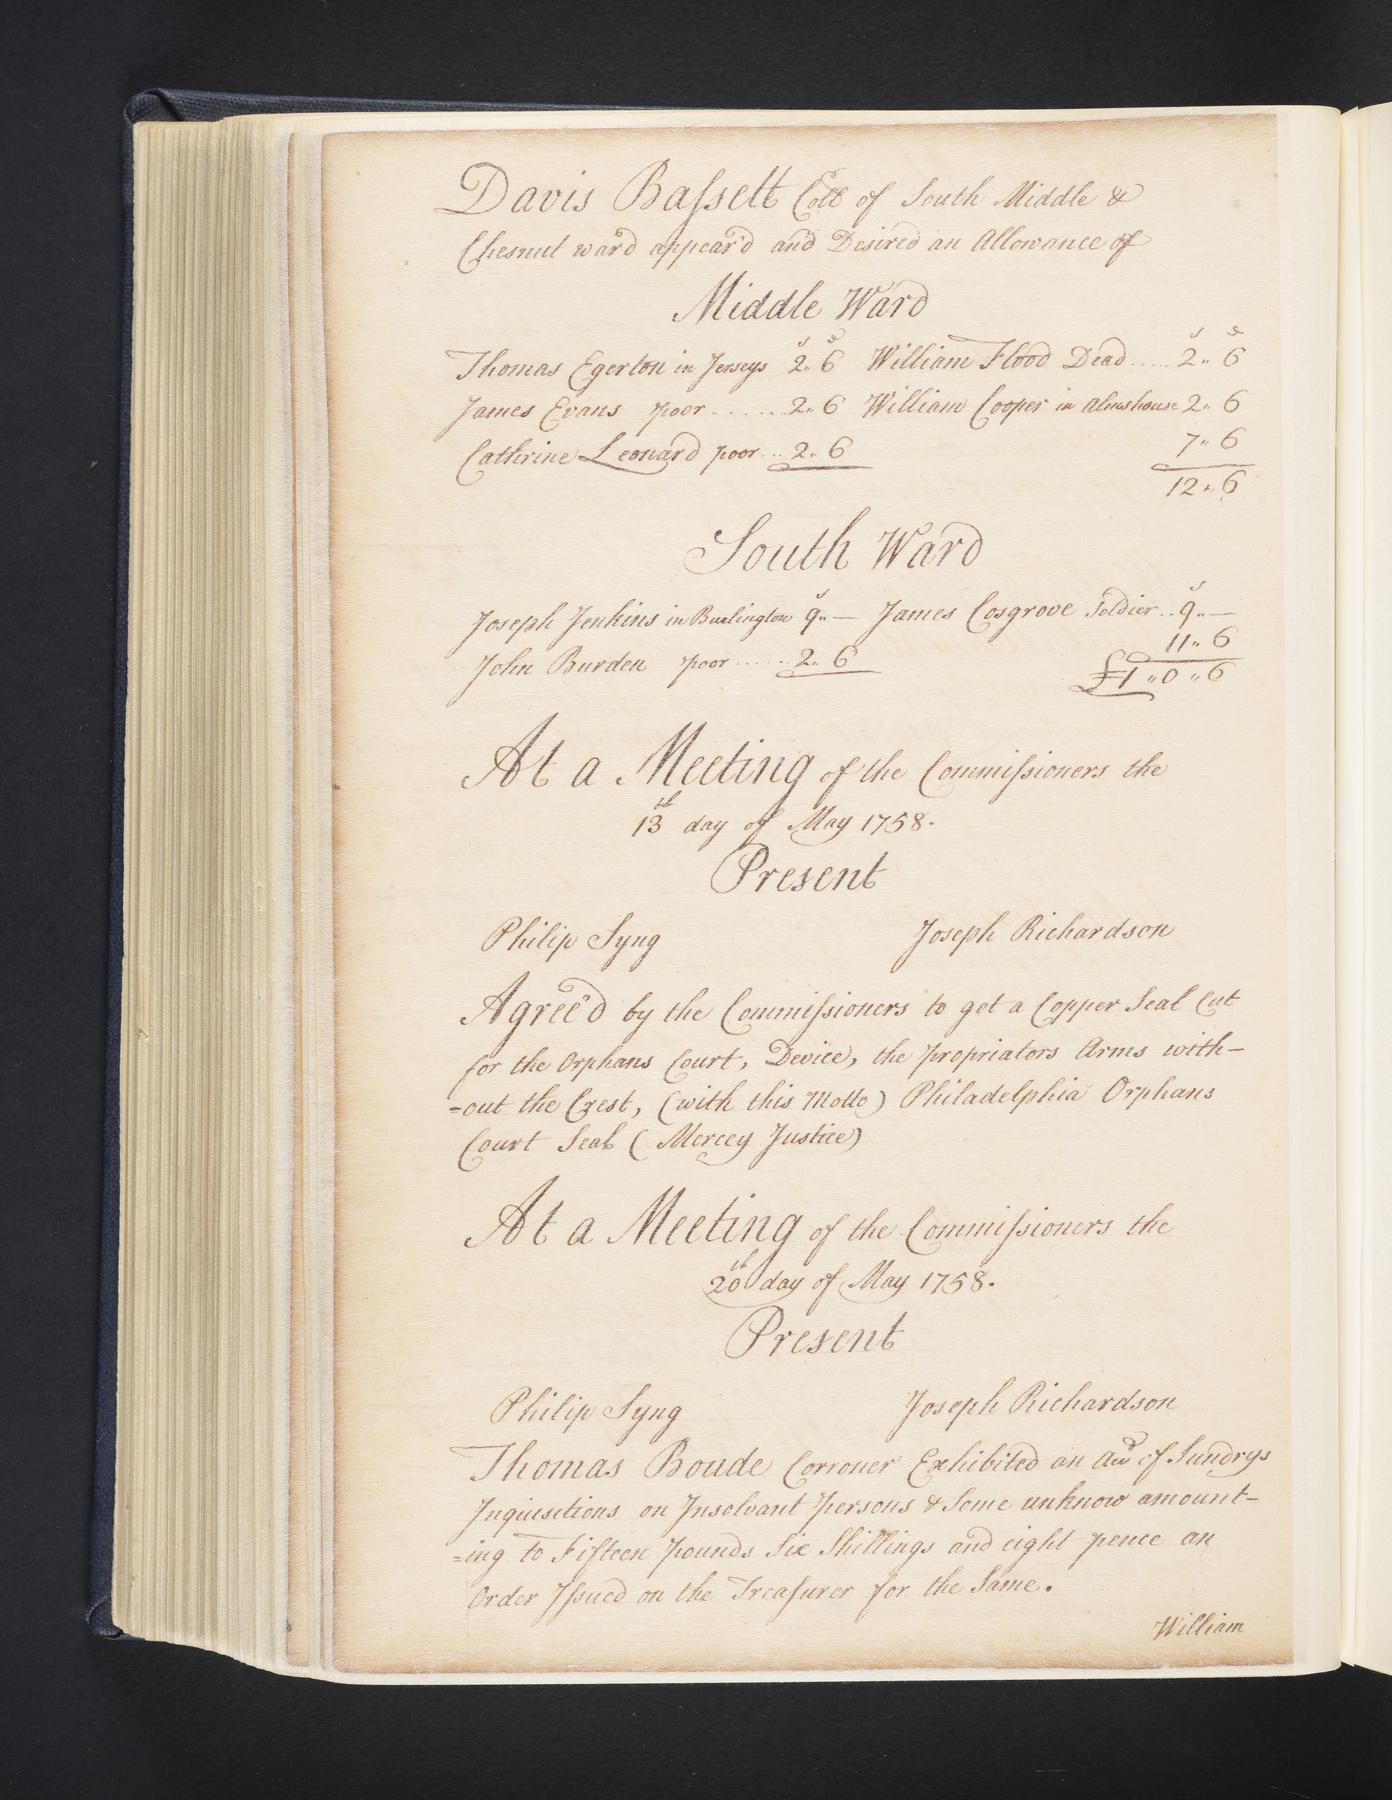 Davis Baſsett Coll of South Middle &
Chesnut ward appear'd and Desired an Allowance of
Middle Ward
s d s d
Thomas Egerton in Jerseys 2..6 William Flood Dead.....2..6
James Evans poor.......2..6 William Cooper in Almshouse 2..6
Cathrine Leonard poor...2..6 7..6
12..6
South Ward
s s
Joseph Jenkins in Burlington 9..— James Cosgrove Soldier..9..—
11..6
John Burden poor......2..6 £1..0..6
At a Meeting of the Commiſsioners the
13th day of May 1758.
Present
Philip Syng Joseph Richardson
Agree'd by the Commiſsioners to get a Copper Seal Cut
for the Orphans Court, Device, the propriators Arms with-
=out the Crest, (with this Motto) Philadelphia Orphans
Court Seal (Mercey Justice)
At a Meeting of the Commiſsioners the
20th day of May 1758.
Present
Philip Syng Joseph Richardson
Thomas Boude Corroner Exhibited an Acct of Sundrys
Inquisitions on Insolvant persons & Some unknow amount-
=ing to Fifteen pounds Six Shillings and eight pence an
Order Iſsued on the Treaſurer for the Same.
William